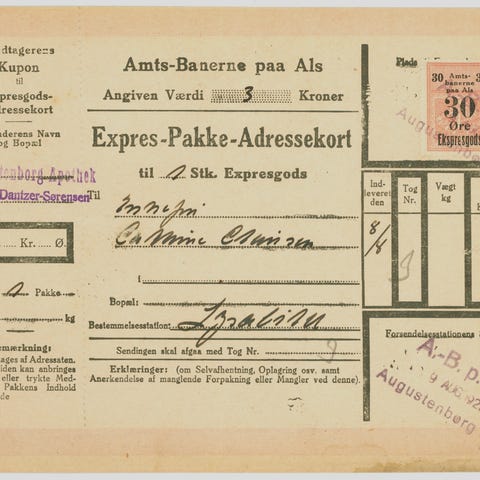 dtagerens
Kupon
til
xpresgods-
dressekort
nderens Navn
og Bopæl
tenborg Apothek
Dantzer-Sørensen
Kr. Ø.
1 Pakke
kg
emærkning:
ages af Adressaten.
iden kan anbringes
eller trykte Med-
Pakkens Indhold
de
Amts-Banerne paa Als
Angiven Værdi 3 Kroner
Expres-Pakke-Adressekort
til 1 Stk. Expresgods
Til
i
Bopæl:
Bestemmelsesstation:
Sendingen skal afgaa med Tog Nr. 9
Erklæringer: (om Selvafhentning, Oplagring osv. samt
Anerkendelse af manglende Forpakning eller Mangler ved denne).
Plads
30 Amts- 3
banerne
paa Als
30
Øre
Ekspresgods
Augustenborg
Ind-
leveret
den
Tog
Nr.
Vægt
kg
8/8
9
Forsendelsesstationens
A.-B. p.
9 AUG. 192
Augustenborg